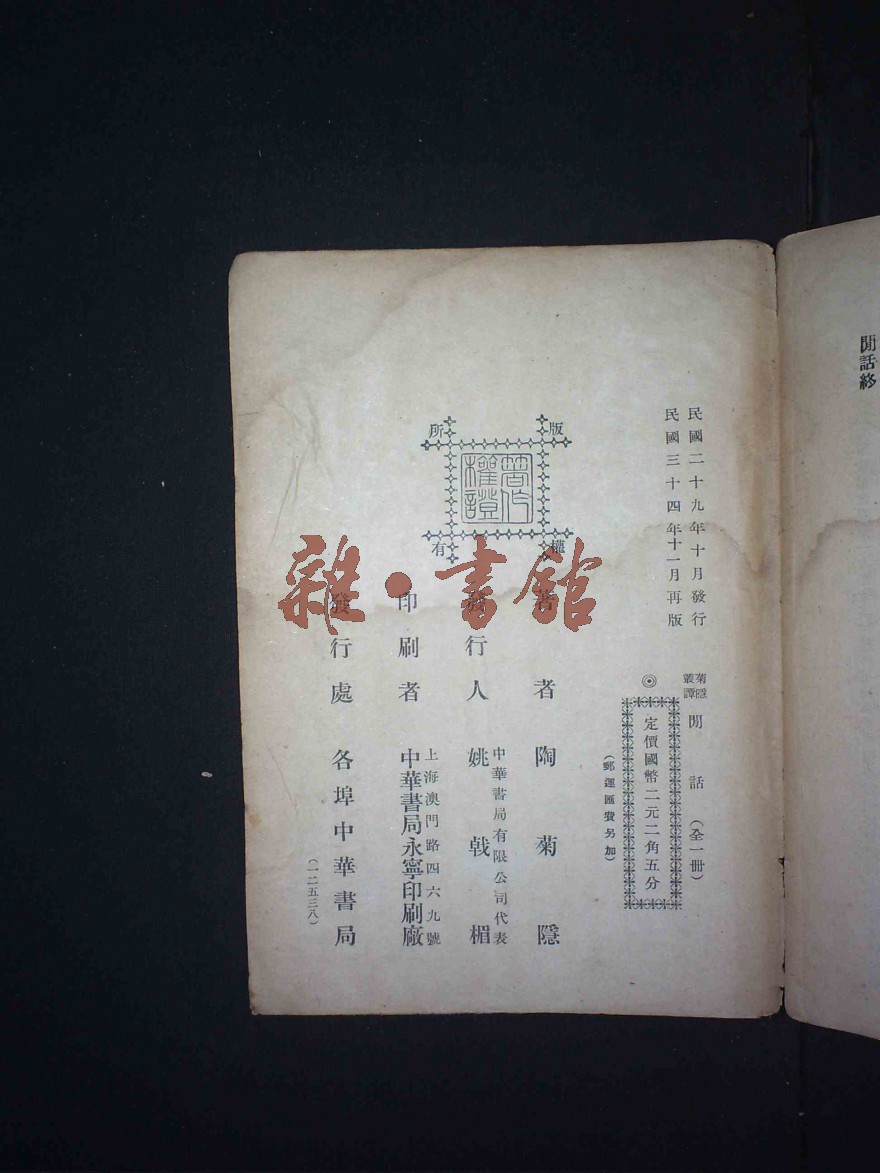 閒話終
民國二十九年十月發行
民國三十四年十一月再版
菊隱叢譚 閒話（全一冊）
◎ 定價國幣二元二角五分
（郵運匯費另加）
版權所有
著作權證
著者 陶菊隱
發行人 中華書局有限公司代表 姚戟楣
印刷者 上海澳門路四六九號 中華書局永寧印刷廠
發行處 各埠中華書局
（一二五三八）
雜·書館